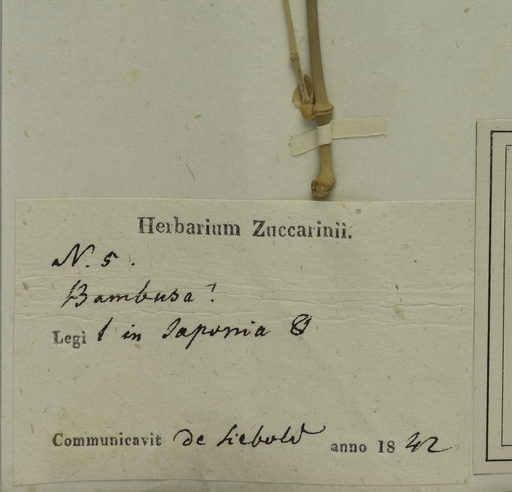 Herbarium Zuccarinii.
N. 5.
Bambusa?
Legi t in Japonia
Communicavit de Siebold anno 18 42